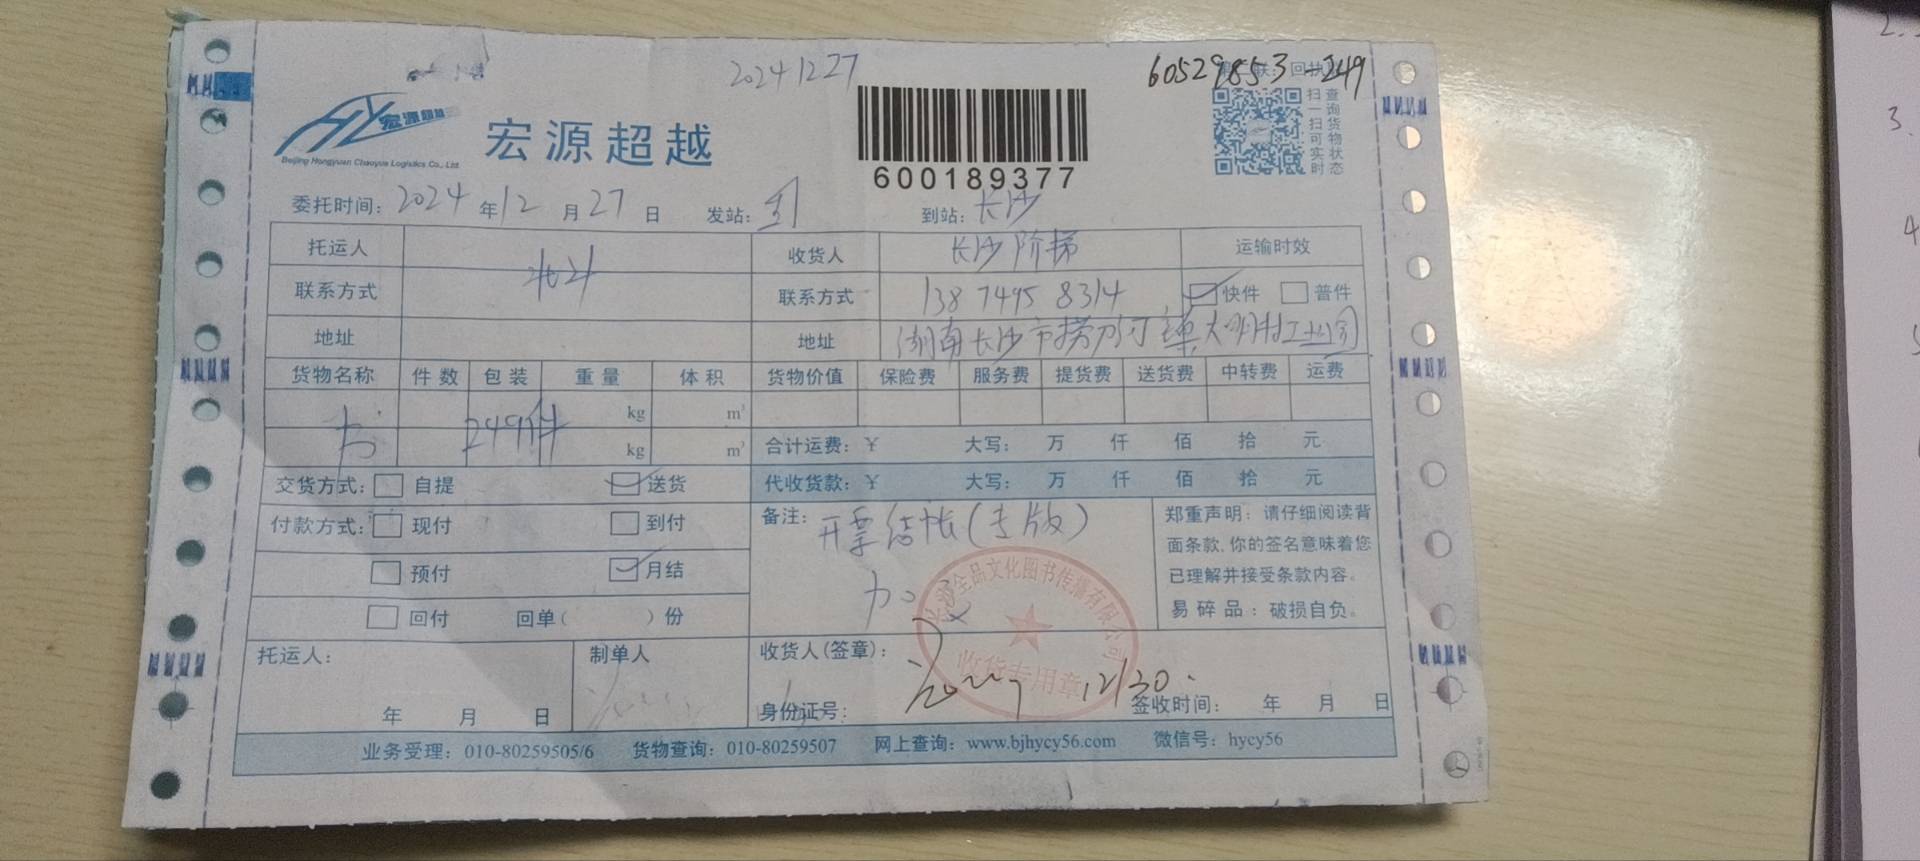 20241227
60529853-249
宏源超越
Beijing Hongyuan Chaoyue Logistics Co., Ltd.
宏源超越
600189377
扫一扫可实时
查询货物状态
委托时间: 2024 年 12 月 27 日 发站: 到站: 长沙
托运人 收货人 长沙阶梯 运输时效
联系方式 联系方式 138 7495 8314 快件 普件
地址 地址 湖南长沙市捞刀河镇大明村工业园
货物名称 件数 包装 重量 体积 货物价值 保险费 服务费 提货费 送货费 中转费 运费
书 249件 kg m³
kg m³
合计运费: ¥ 大写: 万 仟 佰 拾 元
代收货款: ¥ 大写: 万 仟 佰 拾 元
交货方式: 自提 送货
付款方式: 现付 到付
预付 月结
回付 回单( )份
备注: 开票结帐(专版)
郑重声明: 请仔细阅读背
面条款,你的签名意味着您
已理解并接受条款内容。
易碎品: 破损自负。
全品文化图书传播有限公司
收货专用章
托运人:
年 月 日
制单人
收货人(签章):
12/30.
身份证号:
签收时间: 年 月 日
业务受理: 010-80259505/6 货物查询: 010-80259507 网上查询: www.bjhycy56.com 微信号: hycy56